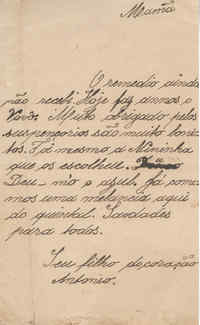 Mamã
O remedio ainda
não recebi. Hoje faz annos o
Muito obrigado pelos
suspençorios são muito boni-
tos. Foi mesmo a Nininha
que os escolheu.
Deu-m'o o azul. Já come-
mos uma melancia aqui
do quintal. Saudades
para todos.
Seu filho do coração
Antonio.